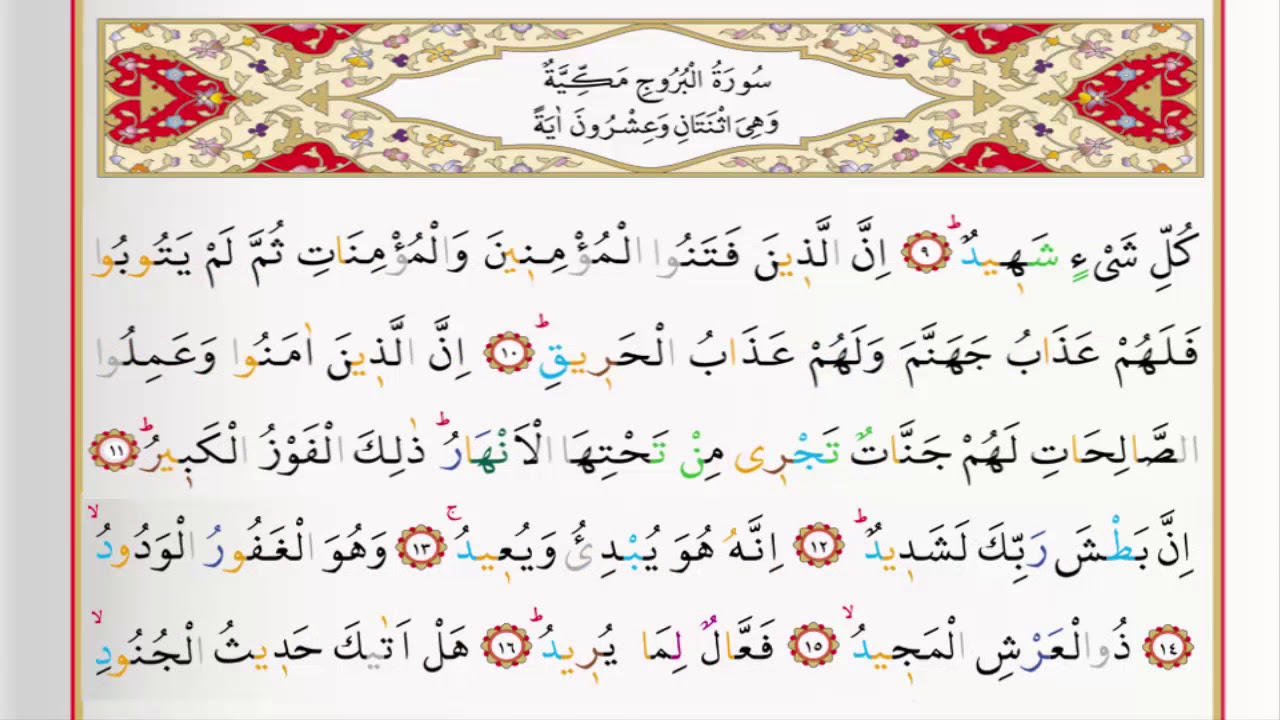 سُورَةُ الْبُرُوجِ مَكِّيَّةٌ
وَهِىَ اثْنَتَانِ وَعِشْرُونَ اٰيَةً
كُلِّ شَىْءٍ شَهٖيدٌؕ ﴿٩﴾ اِنَّ الَّذٖينَ فَتَنُوا الْمُؤْمِنٖينَ وَالْمُؤْمِنَاتِ ثُمَّ لَمْ يَتُوبُوا
فَلَهُمْ عَذَابُ جَهَنَّمَ وَلَهُمْ عَذَابُ الْحَرٖيقِؕ ﴿١٠﴾ اِنَّ الَّذٖينَ اٰمَنُوا وَعَمِلُوا
الصَّالِحَاتِ لَهُمْ جَنَّاتٌ تَجْرٖى مِنْ تَحْتِهَا الْاَنْهَارُؕ ذٰلِكَ الْفَوْزُ الْكَبٖيرُؕ ﴿١١﴾
اِنَّ بَطْشَ رَبِّكَ لَشَدٖيدٌؕ ﴿١٢﴾ اِنَّهُ هُوَ يُبْدِئُ وَيُعٖيدُۚ ﴿١٣﴾ وَهُوَ الْغَفُورُ الْوَدُودُۙ
﴿١٤﴾ ذُوالْعَرْشِ الْمَجٖيدُۙ ﴿١٥﴾ فَعَّالٌ لِمَا يُرٖيدُؕ ﴿١٦﴾ هَلْ اَتٰيكَ حَدٖيثُ الْجُنُودِۙ